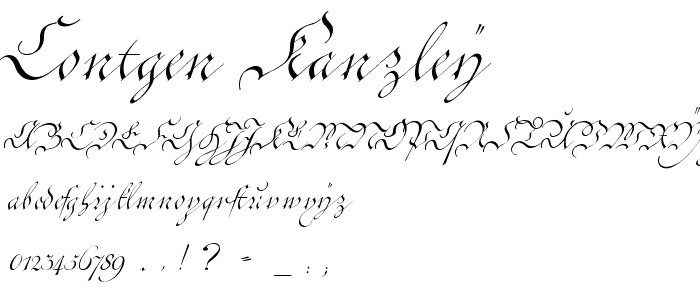 Contgen Kanzleÿ
ABCDEFGHIJKLMNOPQRSTUVWXŸZ
abcdefghijklmnopqrstuvwxÿz
0123456789 . , ! ? = _ : ;